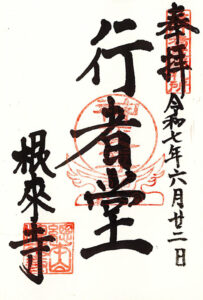 奉拝
令和七年六月廿二日
行者堂
根來寺